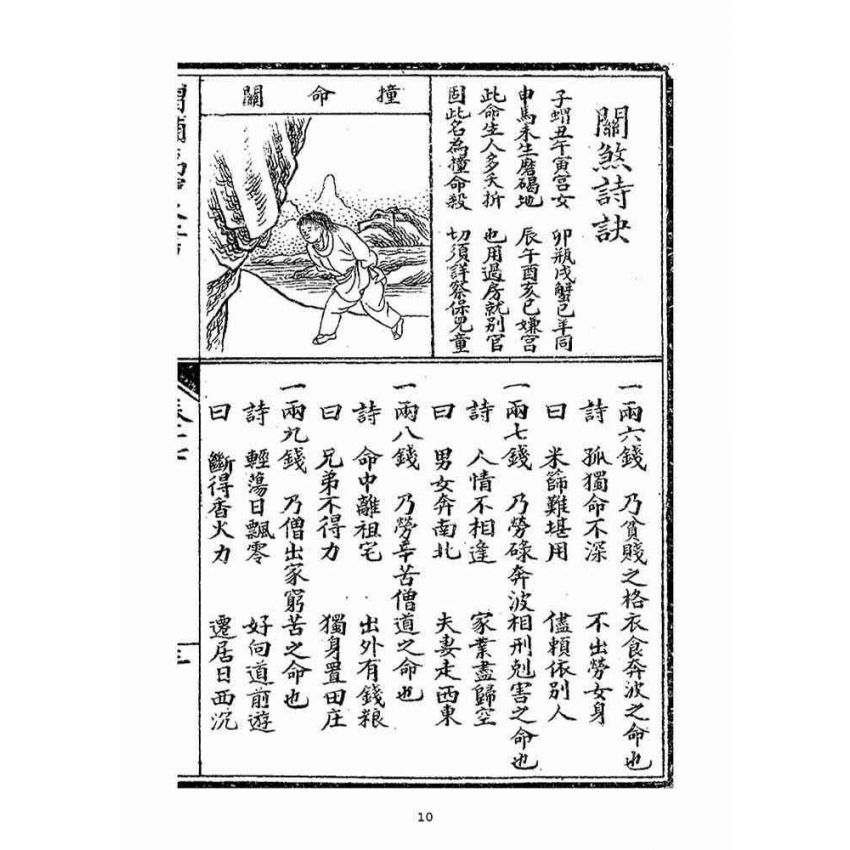 關煞詩訣
子蝟丑午寅宮女 卯瓶戌蟹巳羊同
申馬未生磨碣地 辰午酉亥巳嫌宮
此命生人多夭折 也用過房就別官
因此名為撞命殺 切須詳察保兒童
撞命關
一兩六錢 乃貧賤之格衣食奔波之命也
詩 孤獨命不深 不出勞女身
曰 米篩難堪用 儘賴依別人
一兩七錢 乃勞碌奔波相刑剋害之命也
詩 人情不相逢 家業盡歸空
曰 男女奔南北 夫妻走西東
一兩八錢 乃勞辛苦僧道之命也
詩 命中離祖宅 出外有錢粮
曰 兄弟不得力 獨身置田庄
一兩九錢 乃僧出家窮苦之命也
詩 輕蕩日飄零 好向道前遊
曰 斷得香火力 遷居日西沉
10